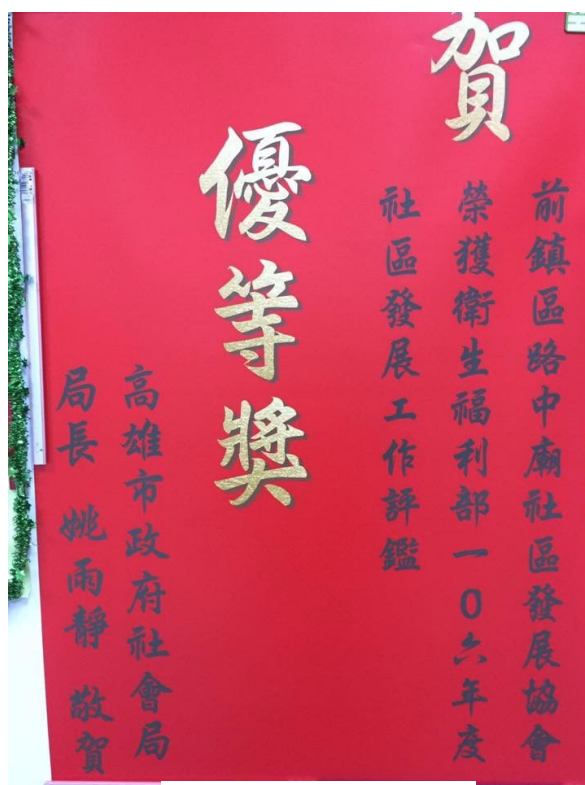 賀
前鎮區路中廟社區發展協會
榮獲衛生福利部一0六年度
社區發展工作評鑑
優等獎
高雄市政府社會局
局長 姚雨靜 敬賀